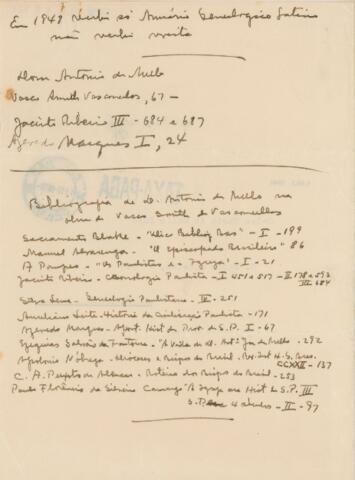 Em 1949 recebi só Anuário Genealógico Latino
não recebi
Dom Antonio de Mello
Vasco Smith Vasconcelos, 67 —
Jacinto Ribeiro III - 684 e 687
Azevedo Marques I, 24
Bibliografia de D. Antonio de Mello na
de Vasco Smith de Vasconcellos
Sacramento Blake - "Dicc Bibliog Bras" - I - 199
Manuel Alvarenga - "O Episcopado Brasileiro" 86
A Pompeo - "Os Paulistas e a Igreja" - I - 21
Jacinto Ribeiro - Cronologia Paulista - I 451 e 517 - II 178 e 593
III 684
Silva Leme - Genealogia Paulistana - IV - 251
Aureliano Leite - Historia da Civilização Paulista - 171
Azevedo Marques - Apont. Hist. da Prov. de S.P. I - 67
Ezequias Galvão da Fontoura - "A Vida de D. Antº Joaq de Mello - 292
Apolonio Nóbrega - Dioceses e Bispos do Brasil - Rev. Inst H. G. Bras.
CCXXII - 137
C. A. Peixoto de Alencar - Roteiro dos Bispos do Brasil - 253
Paulo Florêncio da Silveira Camargo "A Igreja na Hist de S.P. III
S. P. 4 séculos - II - 97